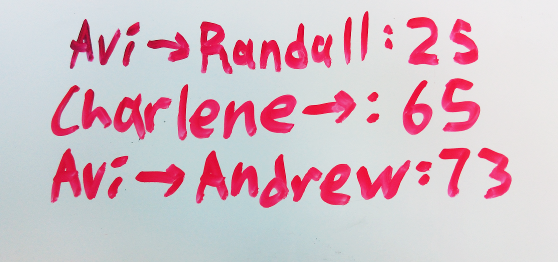 Avi→Randall: 25
Charlene→: 65
Avi→Andrew: 73